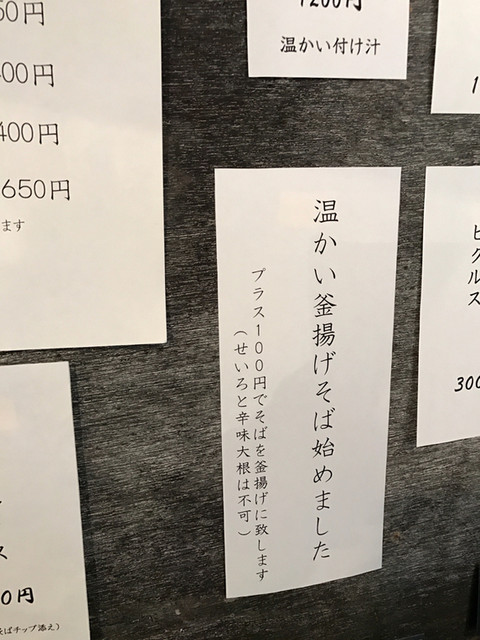 50円
400円
400円
650円
ます
1200円
温かい付け汁
温かい釜揚げそば始めました
プラス100円でそばを釜揚げに致します
(せいろと辛味大根は不可)
1
ピクルス
300
ス
0円
そばチップ添え)